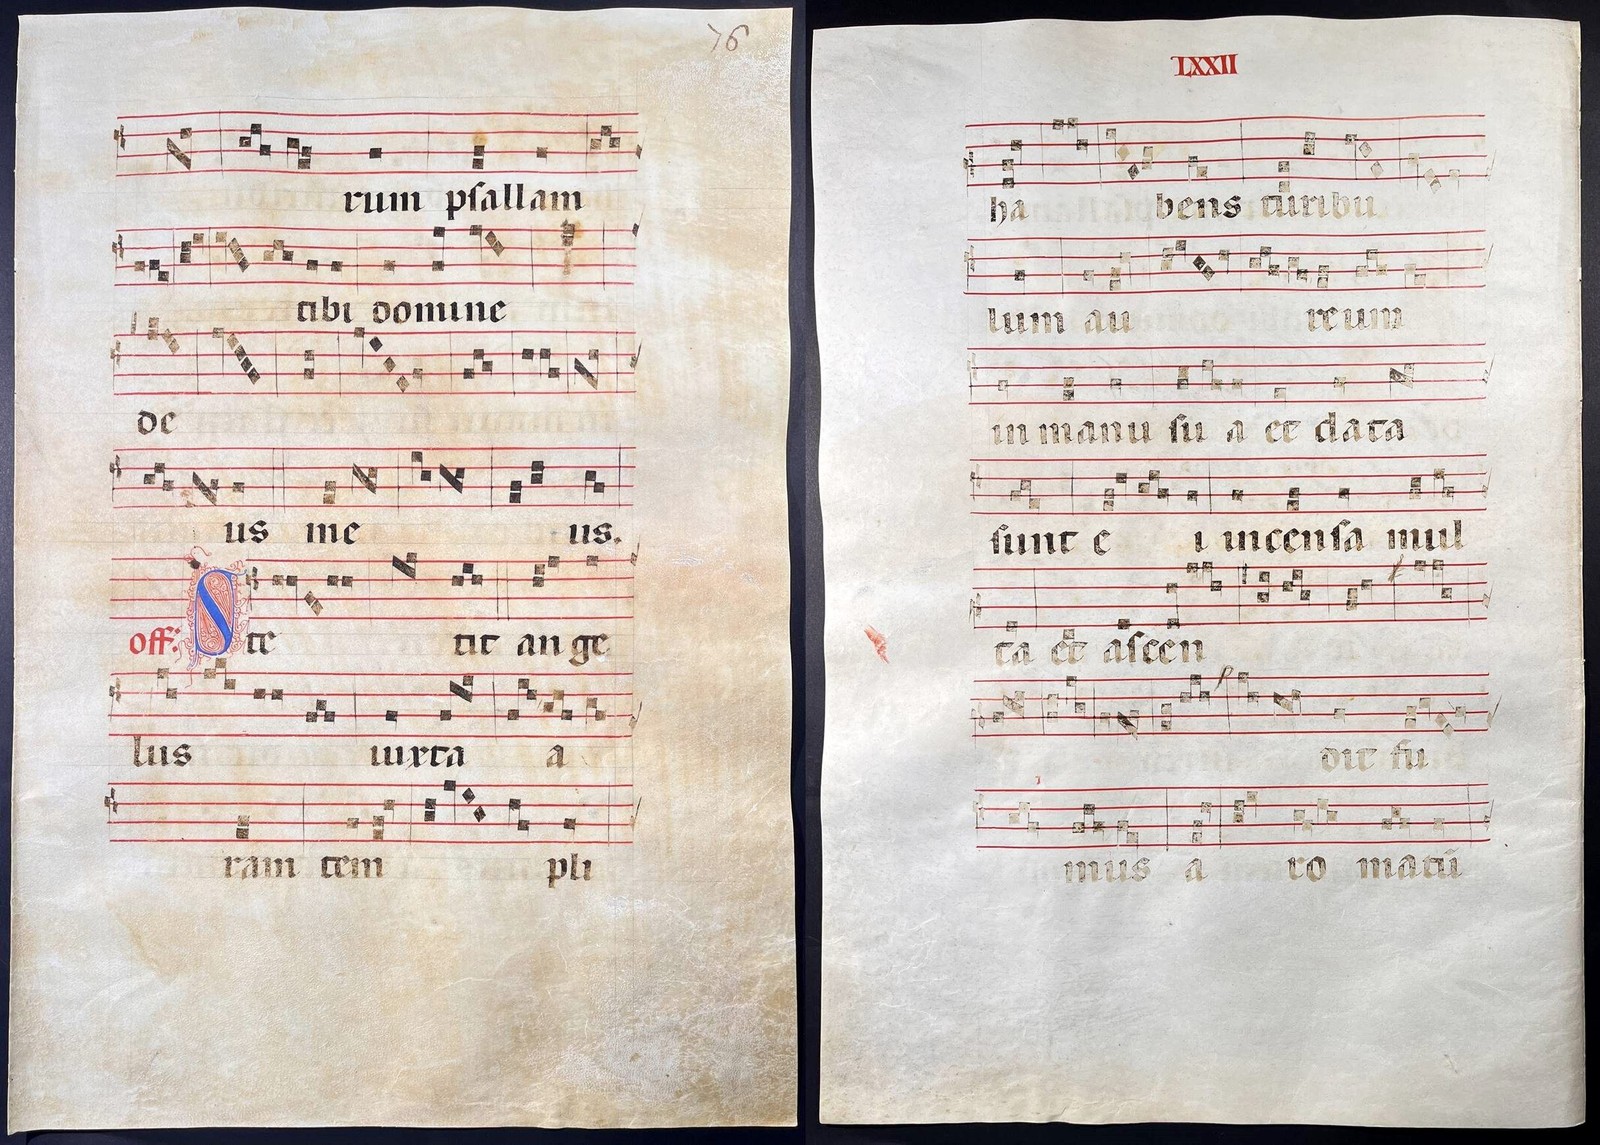 76
rum psallam
tibi domine
de
us me us.
off: Ste tit an ge
lus iuxta a
ram tem pli
LXXII
ha bens turibu
lum au reum
in manu su a et data
sunt e i incensa mul
ta et ascen
dit fu
mus a ro matū